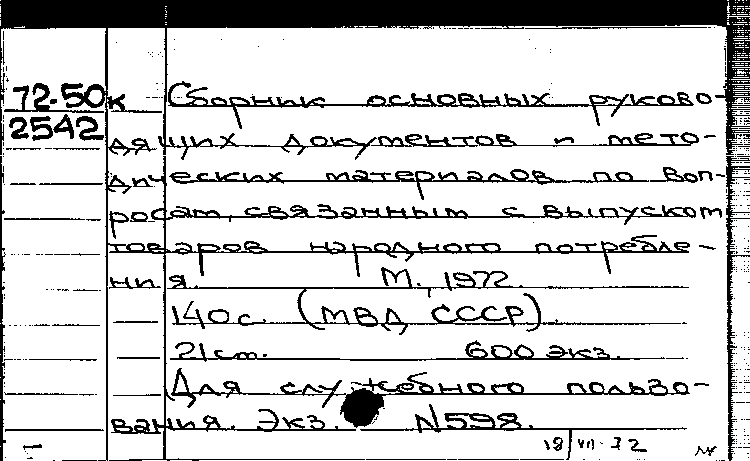 72-50к Сборник основных руково-
2542 дящих документов и мето-
дических материалов по воп-
росам, связанным с выпуском
товаров народного потребле-
ния. М., 1972.
140 с. (МВД СССР).
21 см. 600 экз.
Для служебного пользо-
вания. Экз. N598.
18/VII-72